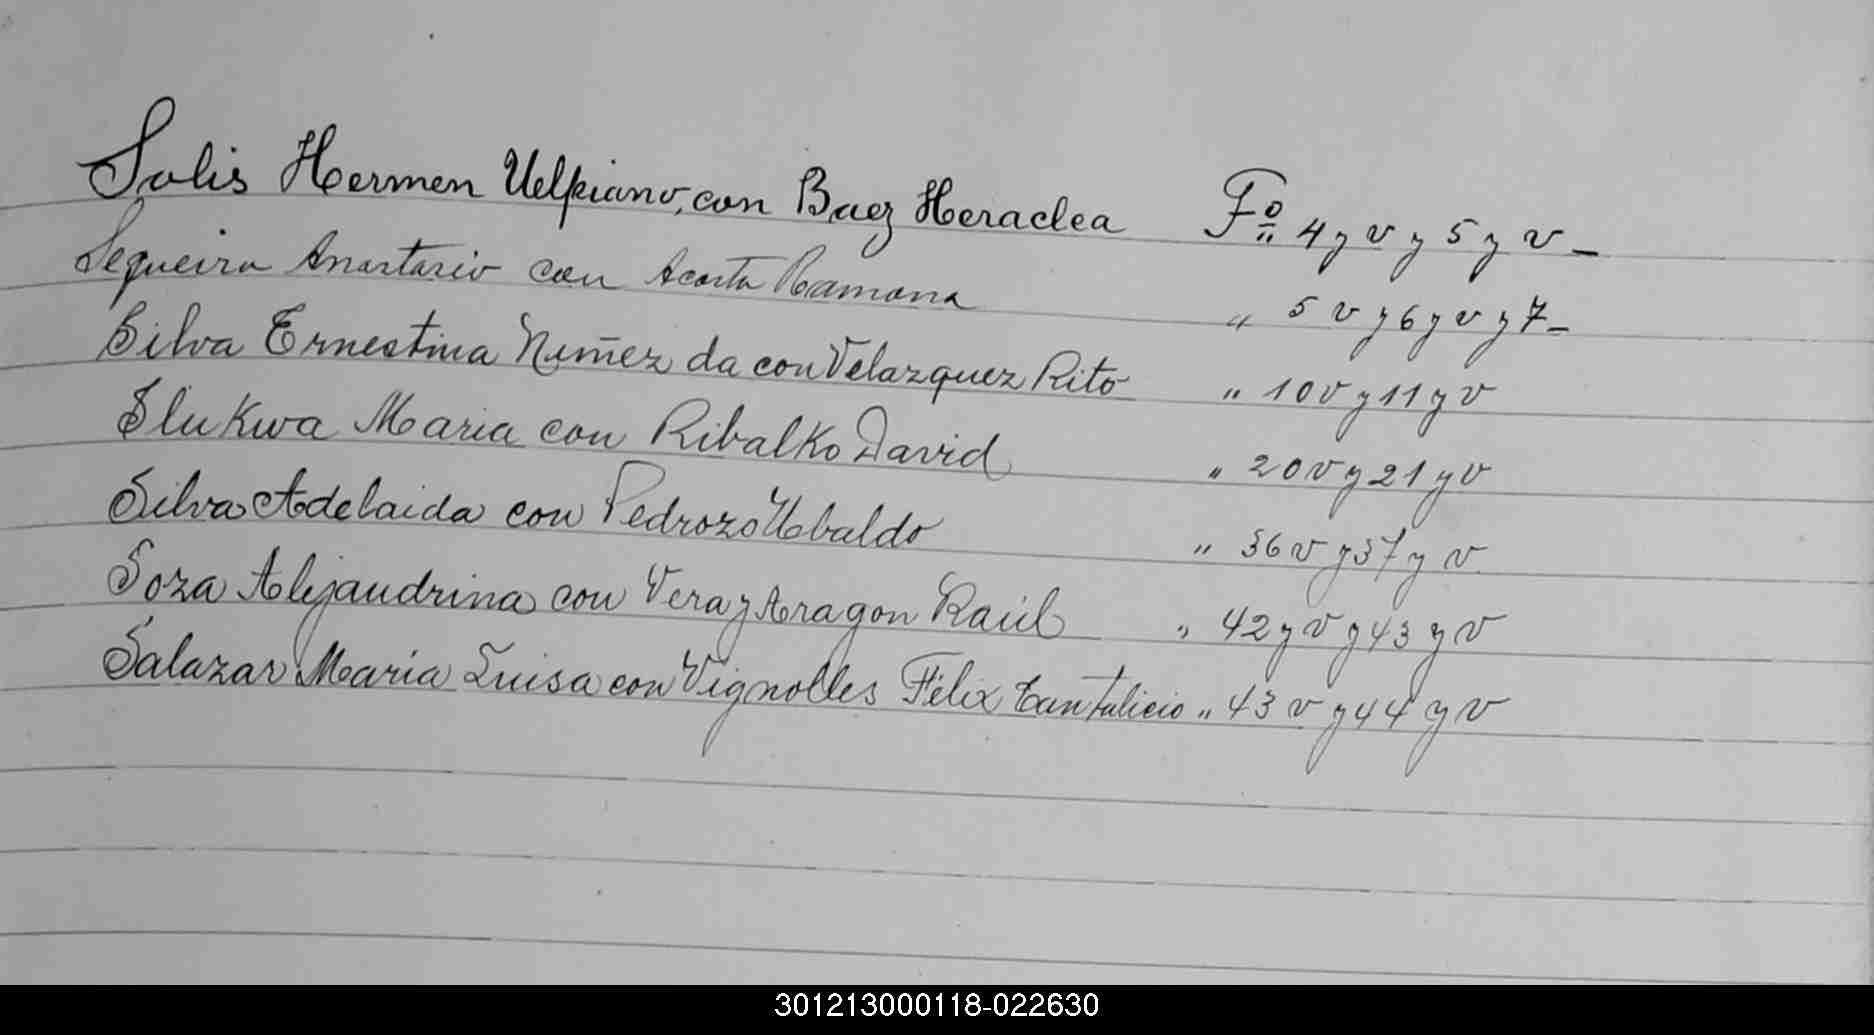 Solis Hermen Uelpiano, con Baez Heraclea Fº 4 y v y 5 y v –
Sequeira Anastasio con Acosta Ramona " 5 v y 6 y v y 7 –
Silva Ernestina Nuñez da con Velazquez Rito " 10 v y 11 y v
Slukwa Maria con Ribalko David " 20 v y 21 y v
Silva Adelaida con Pedrozo Ubaldo " 36 v y 37 y v
Soza Alejandrina con Vera y Aragon Raúl " 42 y v y 43 y v
Salazar Maria Luisa con Vignolles Félix Cantalicio " 43 v y 44 y v
301213000118-022630